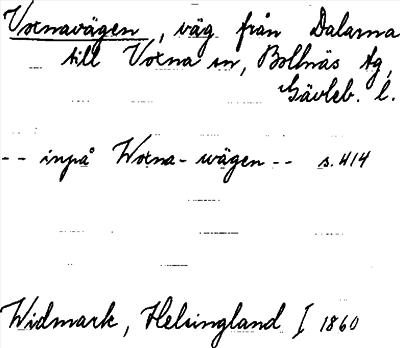 Voxnavägen, väg från Dalarna
till Voxna sn, Bollnäs tg,
Gävleb. l.
-- inpå Woxna-wägen -- s. 414
Widmark, Helsingland I 1860